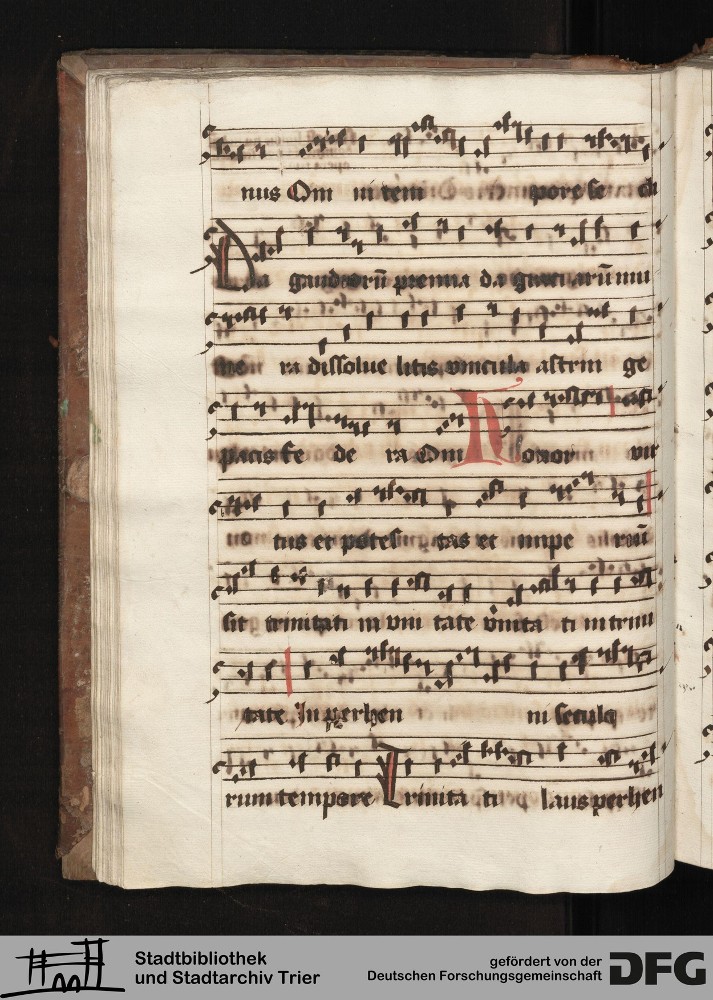 nus Om ni tem pore se cu
Da gaudiorū premia da gratiarū mu
ne ra dissolue litis vincula astrin ge
pacis fe de ra Om Honor vir
tus et potes tas et impe riū
sit trinitati in vni tate vnita ti in trini
tate In perhen ni secula
rum tempore Trinita ti laus perhen
Stadtbibliothek
und Stadtarchiv Trier
gefördert von der
Deutschen Forschungsgemeinschaft
DFG